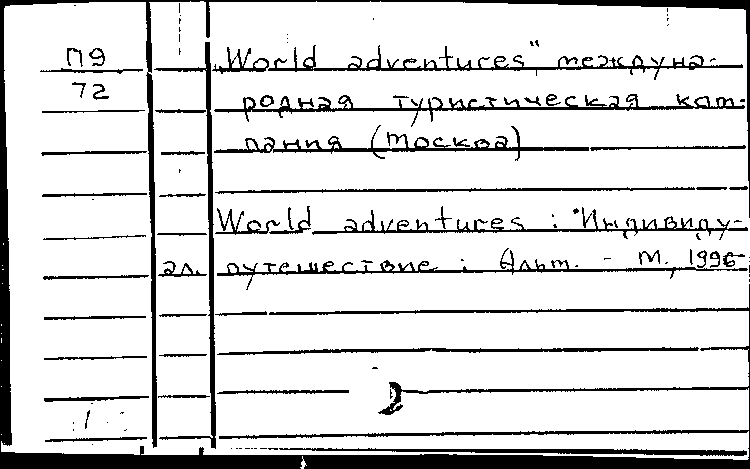 П9
72
„World adventures", междуна-
родная туристическая ком-
пания (Москва)
World adventures : "Индивиду-
ал. путешествие : Альт. - М., 1996-